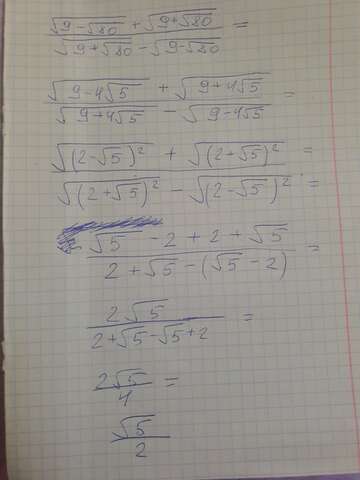 (√(9-√80) + √(9+√80)) / (√(9+√80) - √(9-√80)) =
(√(9-4√5) + √(9+4√5)) / (√(9+4√5) - √(9-4√5)) =
(√((2-√5)²) + √((2+√5)²)) / (√((2+√5)²) - √((2-√5)²)) = =
(√5 - 2 + 2 + √5) / (2 + √5 - (√5 - 2)) =
(2√5) / (2+√5-√5+2) =
(2√5) / 4 =
√5 / 2